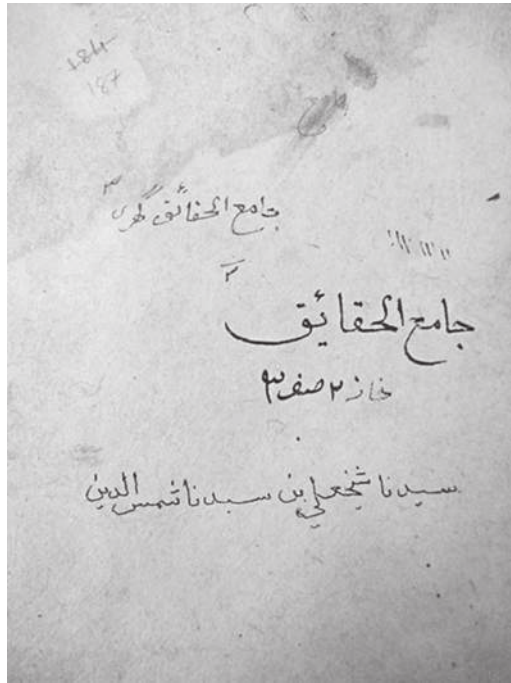 184
187
جامع الحقائق
٣
جامع الحقائق
خانہ ٢ صف ٣
سيدنا شيخعلي بن سيدنا شمس الدين